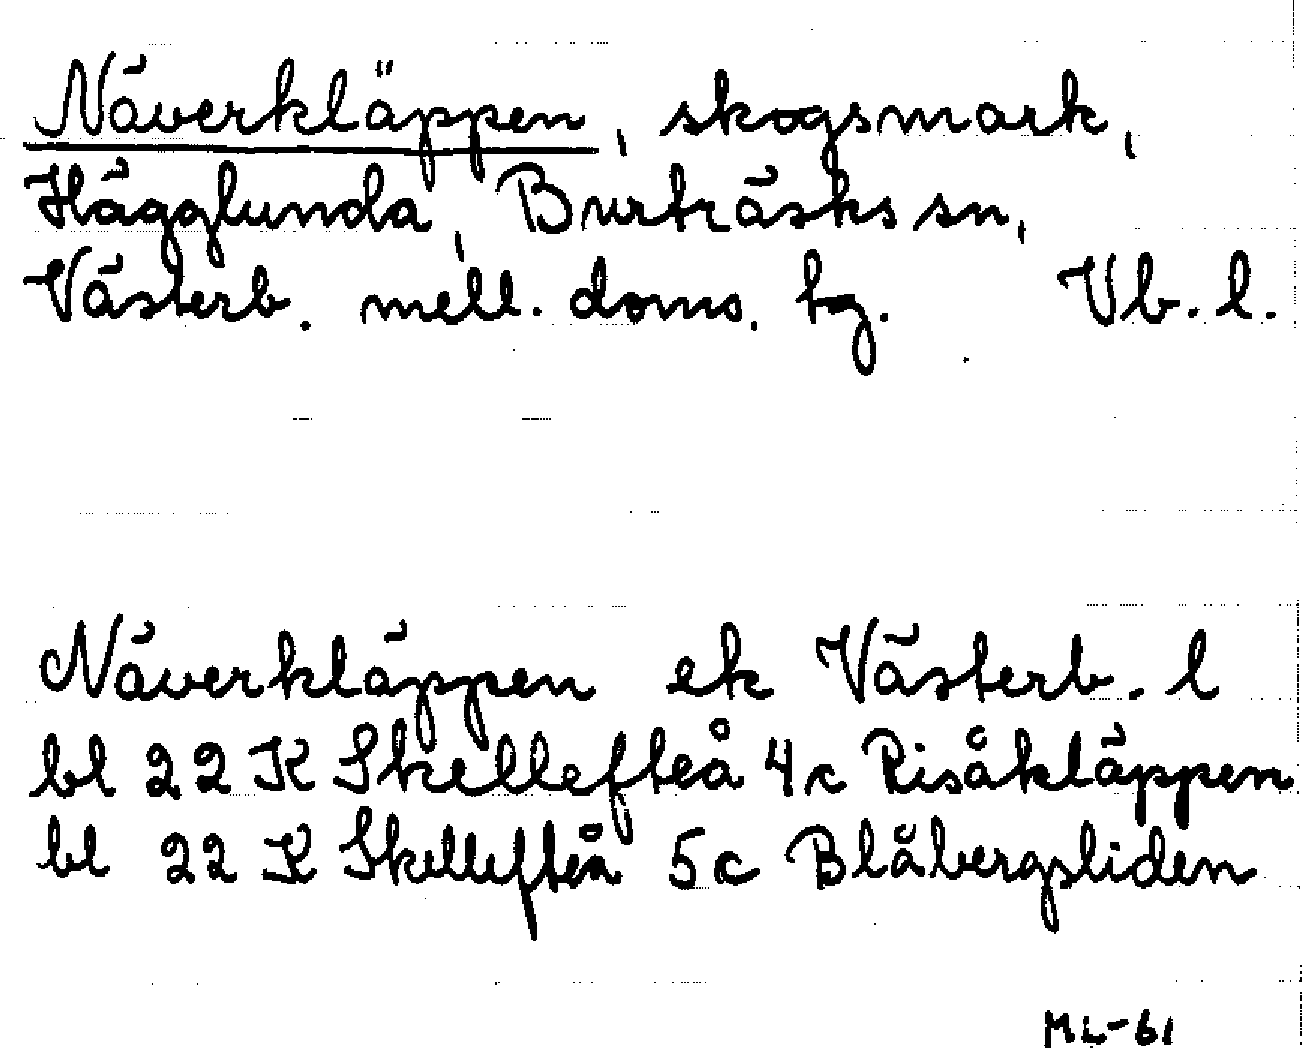 Näverkläppen, skogsmark,
Hägglunda, Burträsks sn,
Västerb. mell. doms. tg. Vb. l.
Näverkläppen ek Västerb. l
bl 22 K Skellefteå 4c Risåkläppen
bl 22 K Skellefteå 5c Blåbergsliden
ML-61